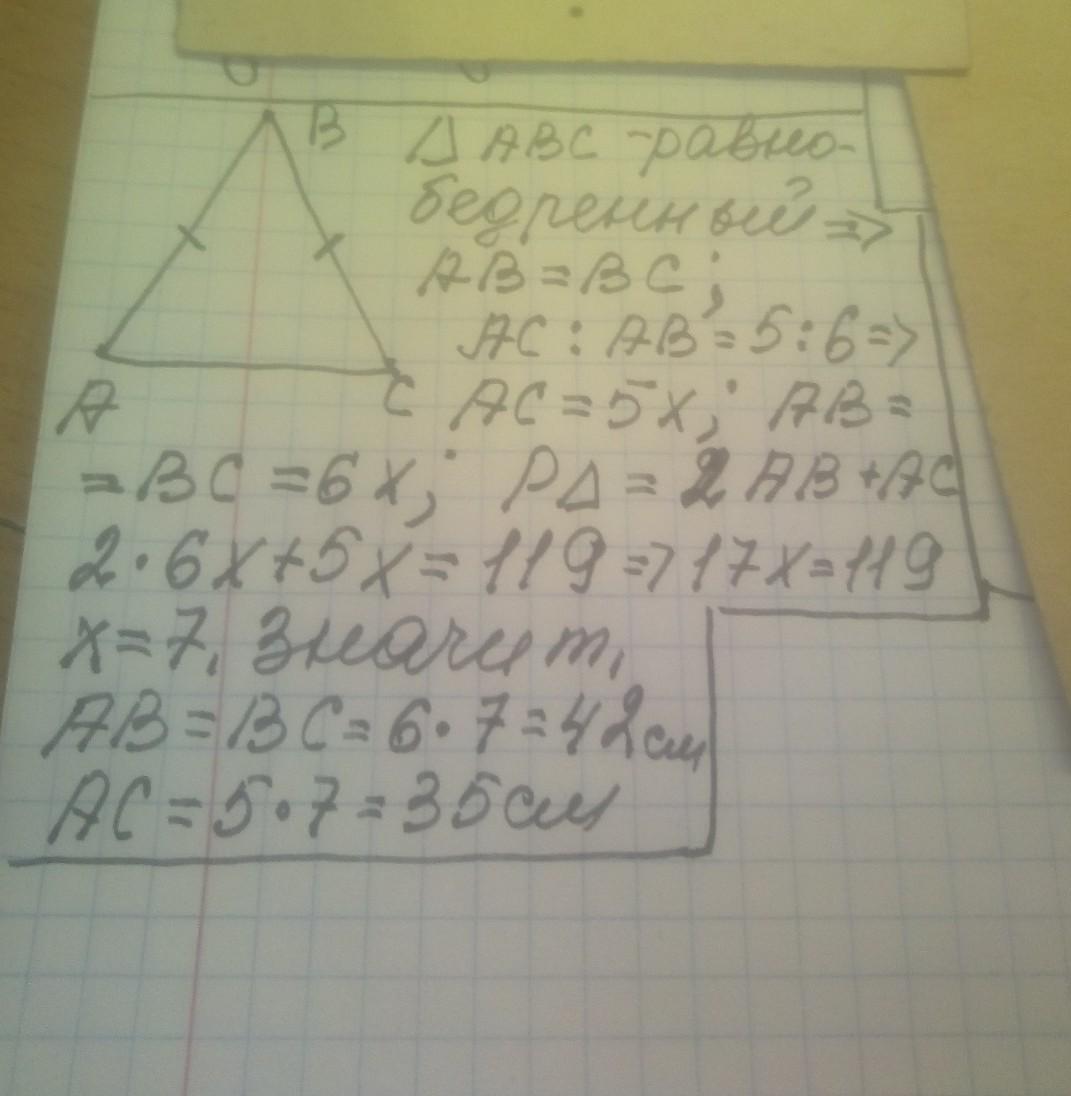 B
△ ABC - равно-
бедренный =>
AB = BC;
AC : AB = 5 : 6 =>
A
C
AC = 5x; AB =
= BC = 6x; P△ = 2AB + AC
2·6x + 5x = 119 => 17x = 119
x = 7. Значит,
AB = BC = 6·7 = 42см
AC = 5·7 = 35см